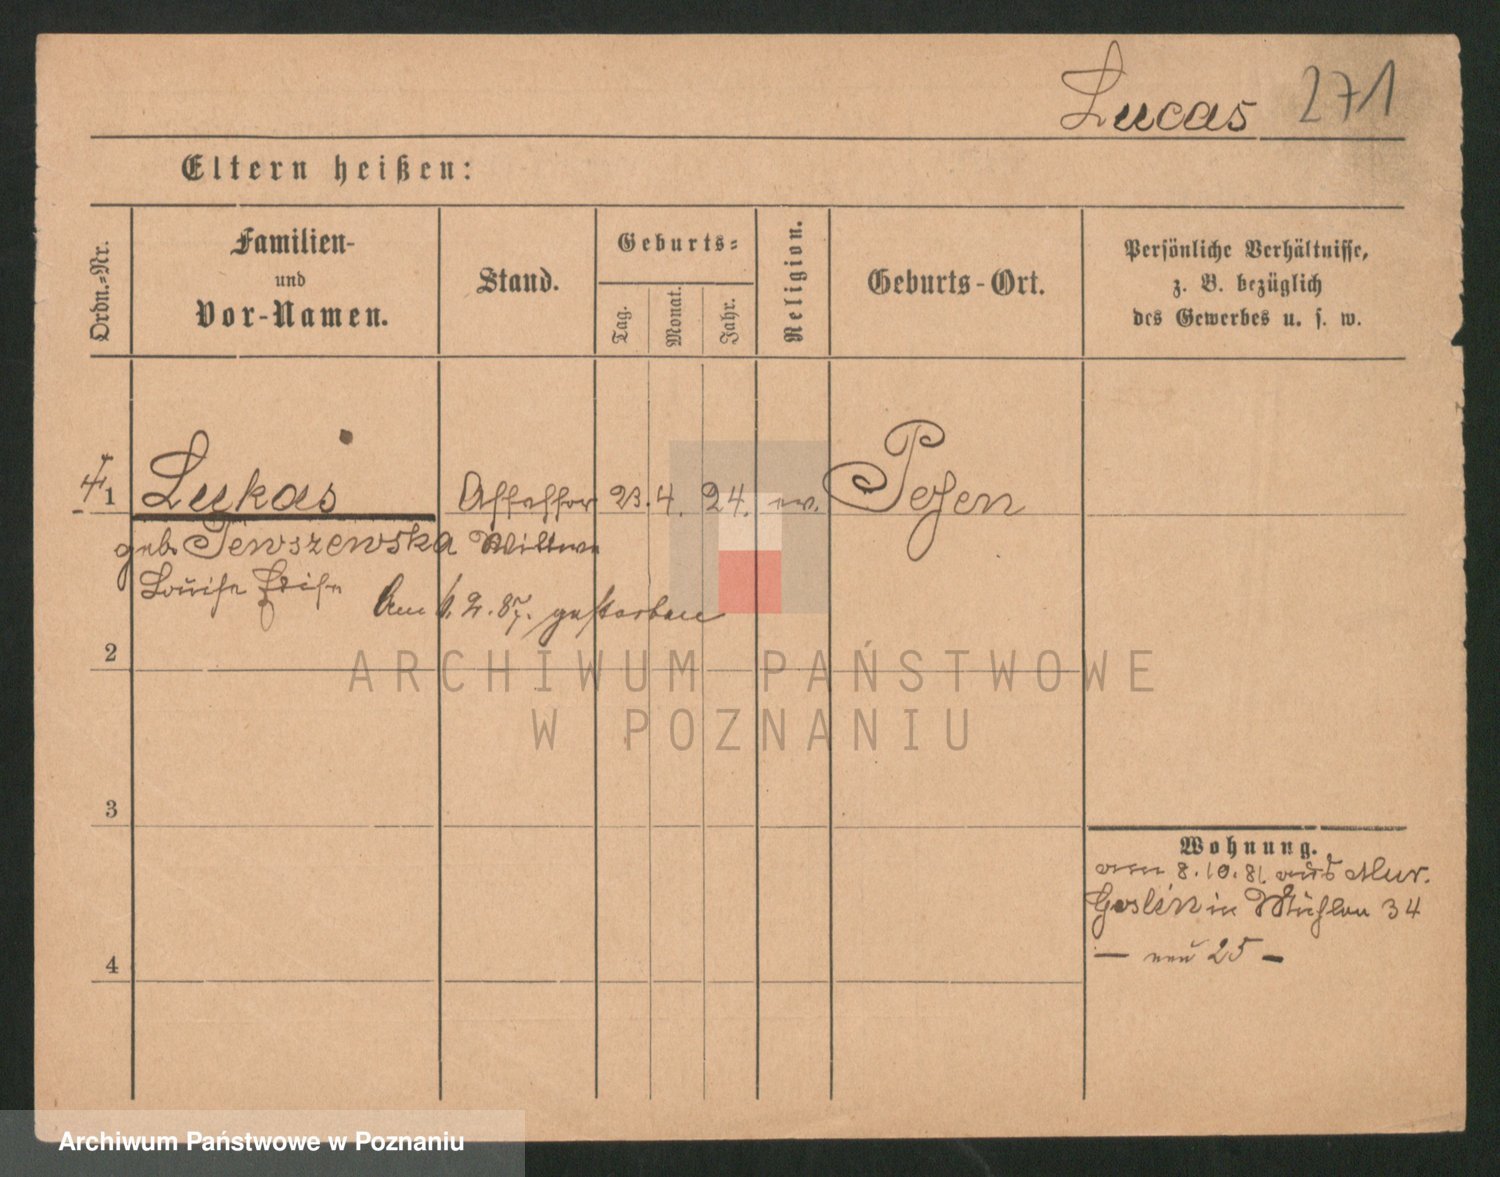 Lucas 271
Eltern heißen:
Ordn.-Nr.
Familien-
und
Vor-Namen.
Stand.
Geburts-
Tag.
Monat.
Jahr.
Religion.
Geburts-Ort.
Persönliche Verhältnisse,
z. B. bezüglich
des Gewerbes u. s. w.
1 Lukas Assessor 23. 4. 24. ev. Posen
geb. Wittwe
Louise
Am 2. 87. gestorben
2
3
4
Wohnung.
8.10.81. aus Mur.
Goslin in Mühlen 34
— neu 25 —
ARCHIWUM PAŃSTWOWE
W POZNANIU
Archiwum Państwowe w Poznaniu